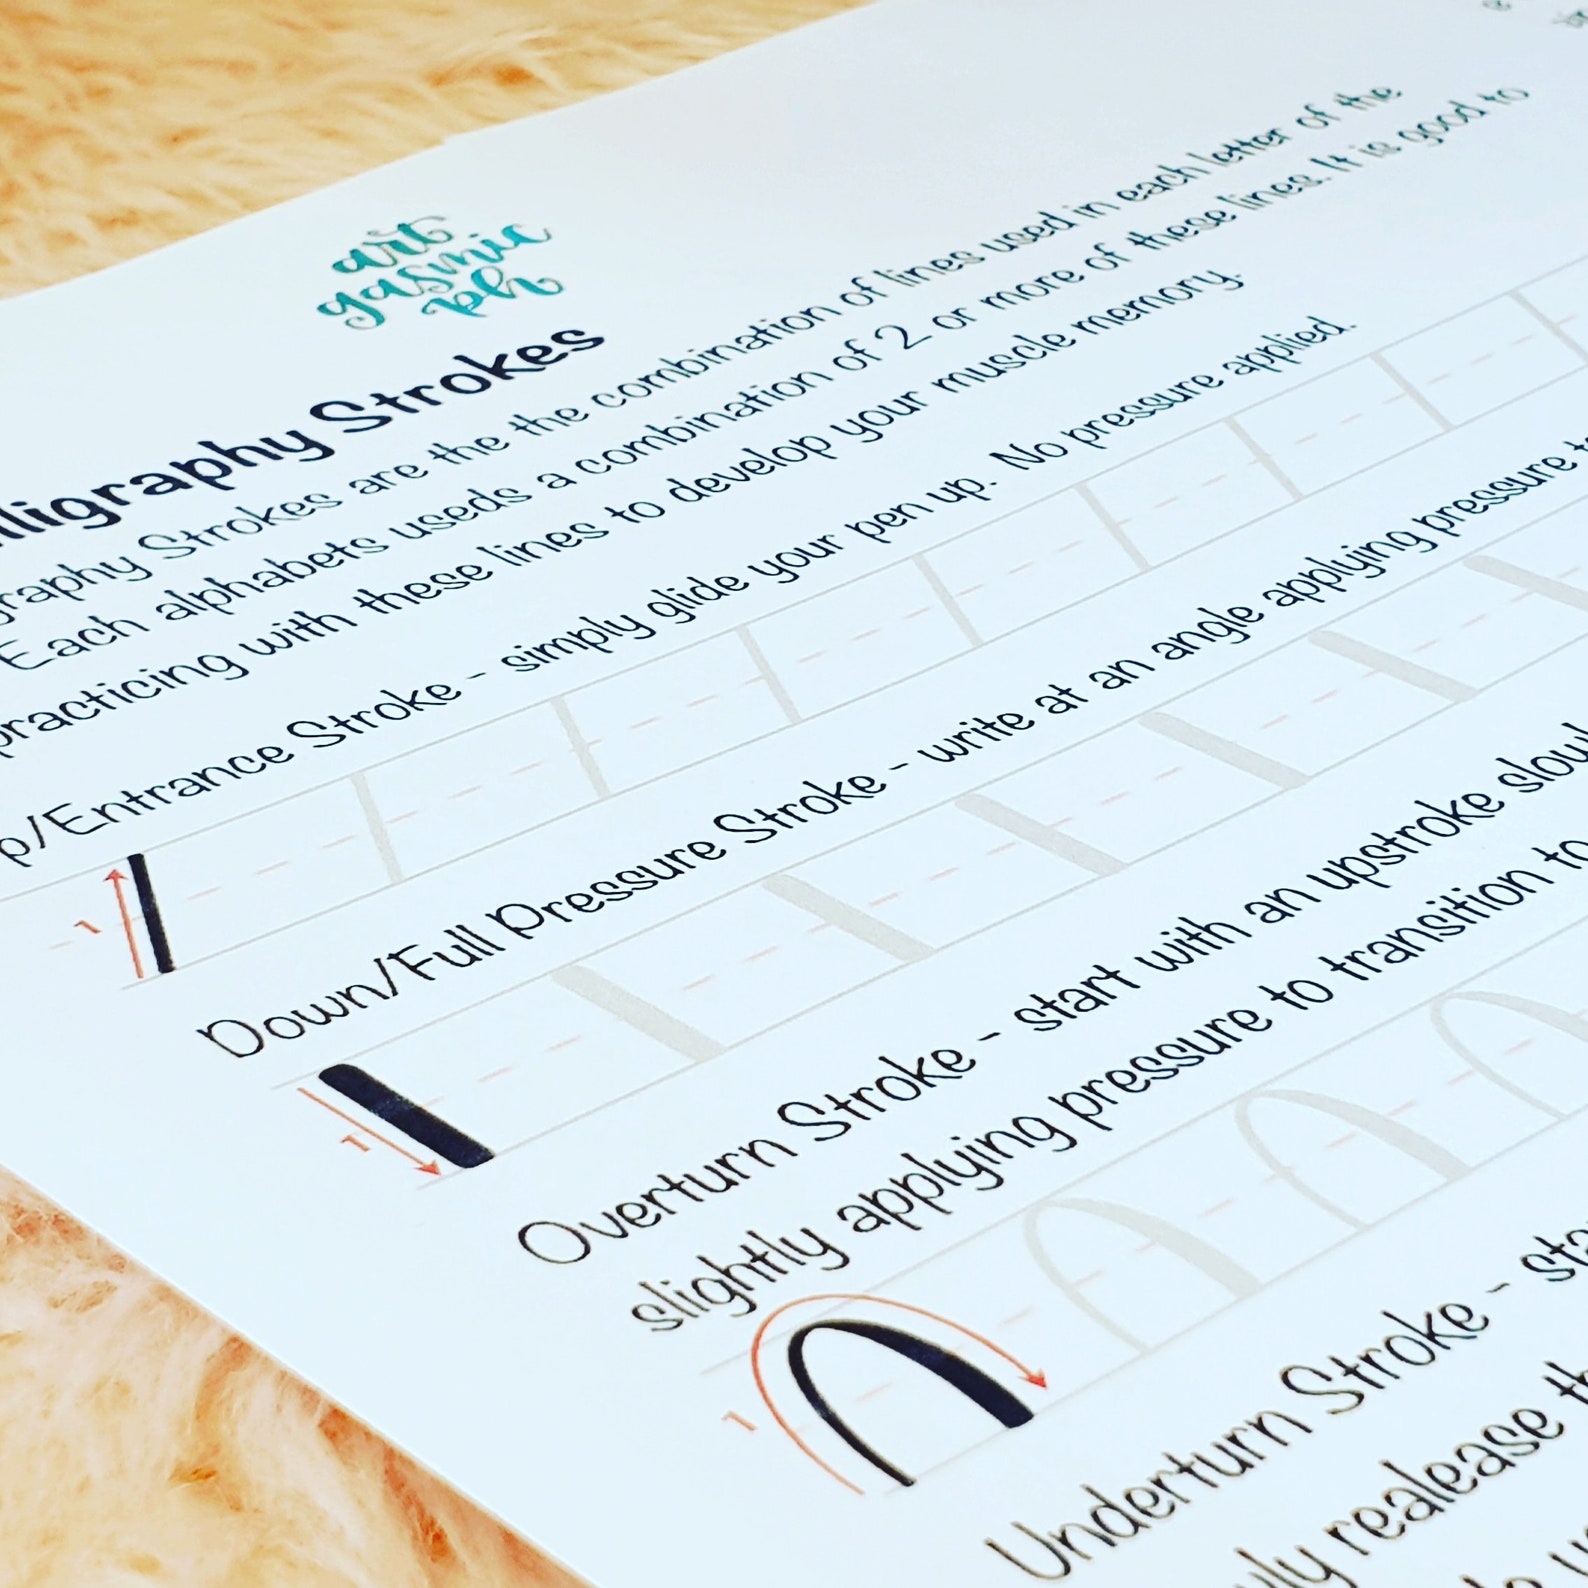 art
gasmic
ph
lligraphy Strokes
graphy Strokes are the the combination of lines used in each letter of the
Each alphabets useds a combination of 2 or more of these lines. It is good to
practicing with these lines to develop your muscle memory.
p/Entrance Stroke - simply glide your pen up. No pressure applied.
1
Down/Full Pressure Stroke - write at an angle applying pressure to
1
Overturn Stroke - start with an upstroke slowl
slightly applying pressure to transition to
1
Underturn Stroke - sta
ly realease th